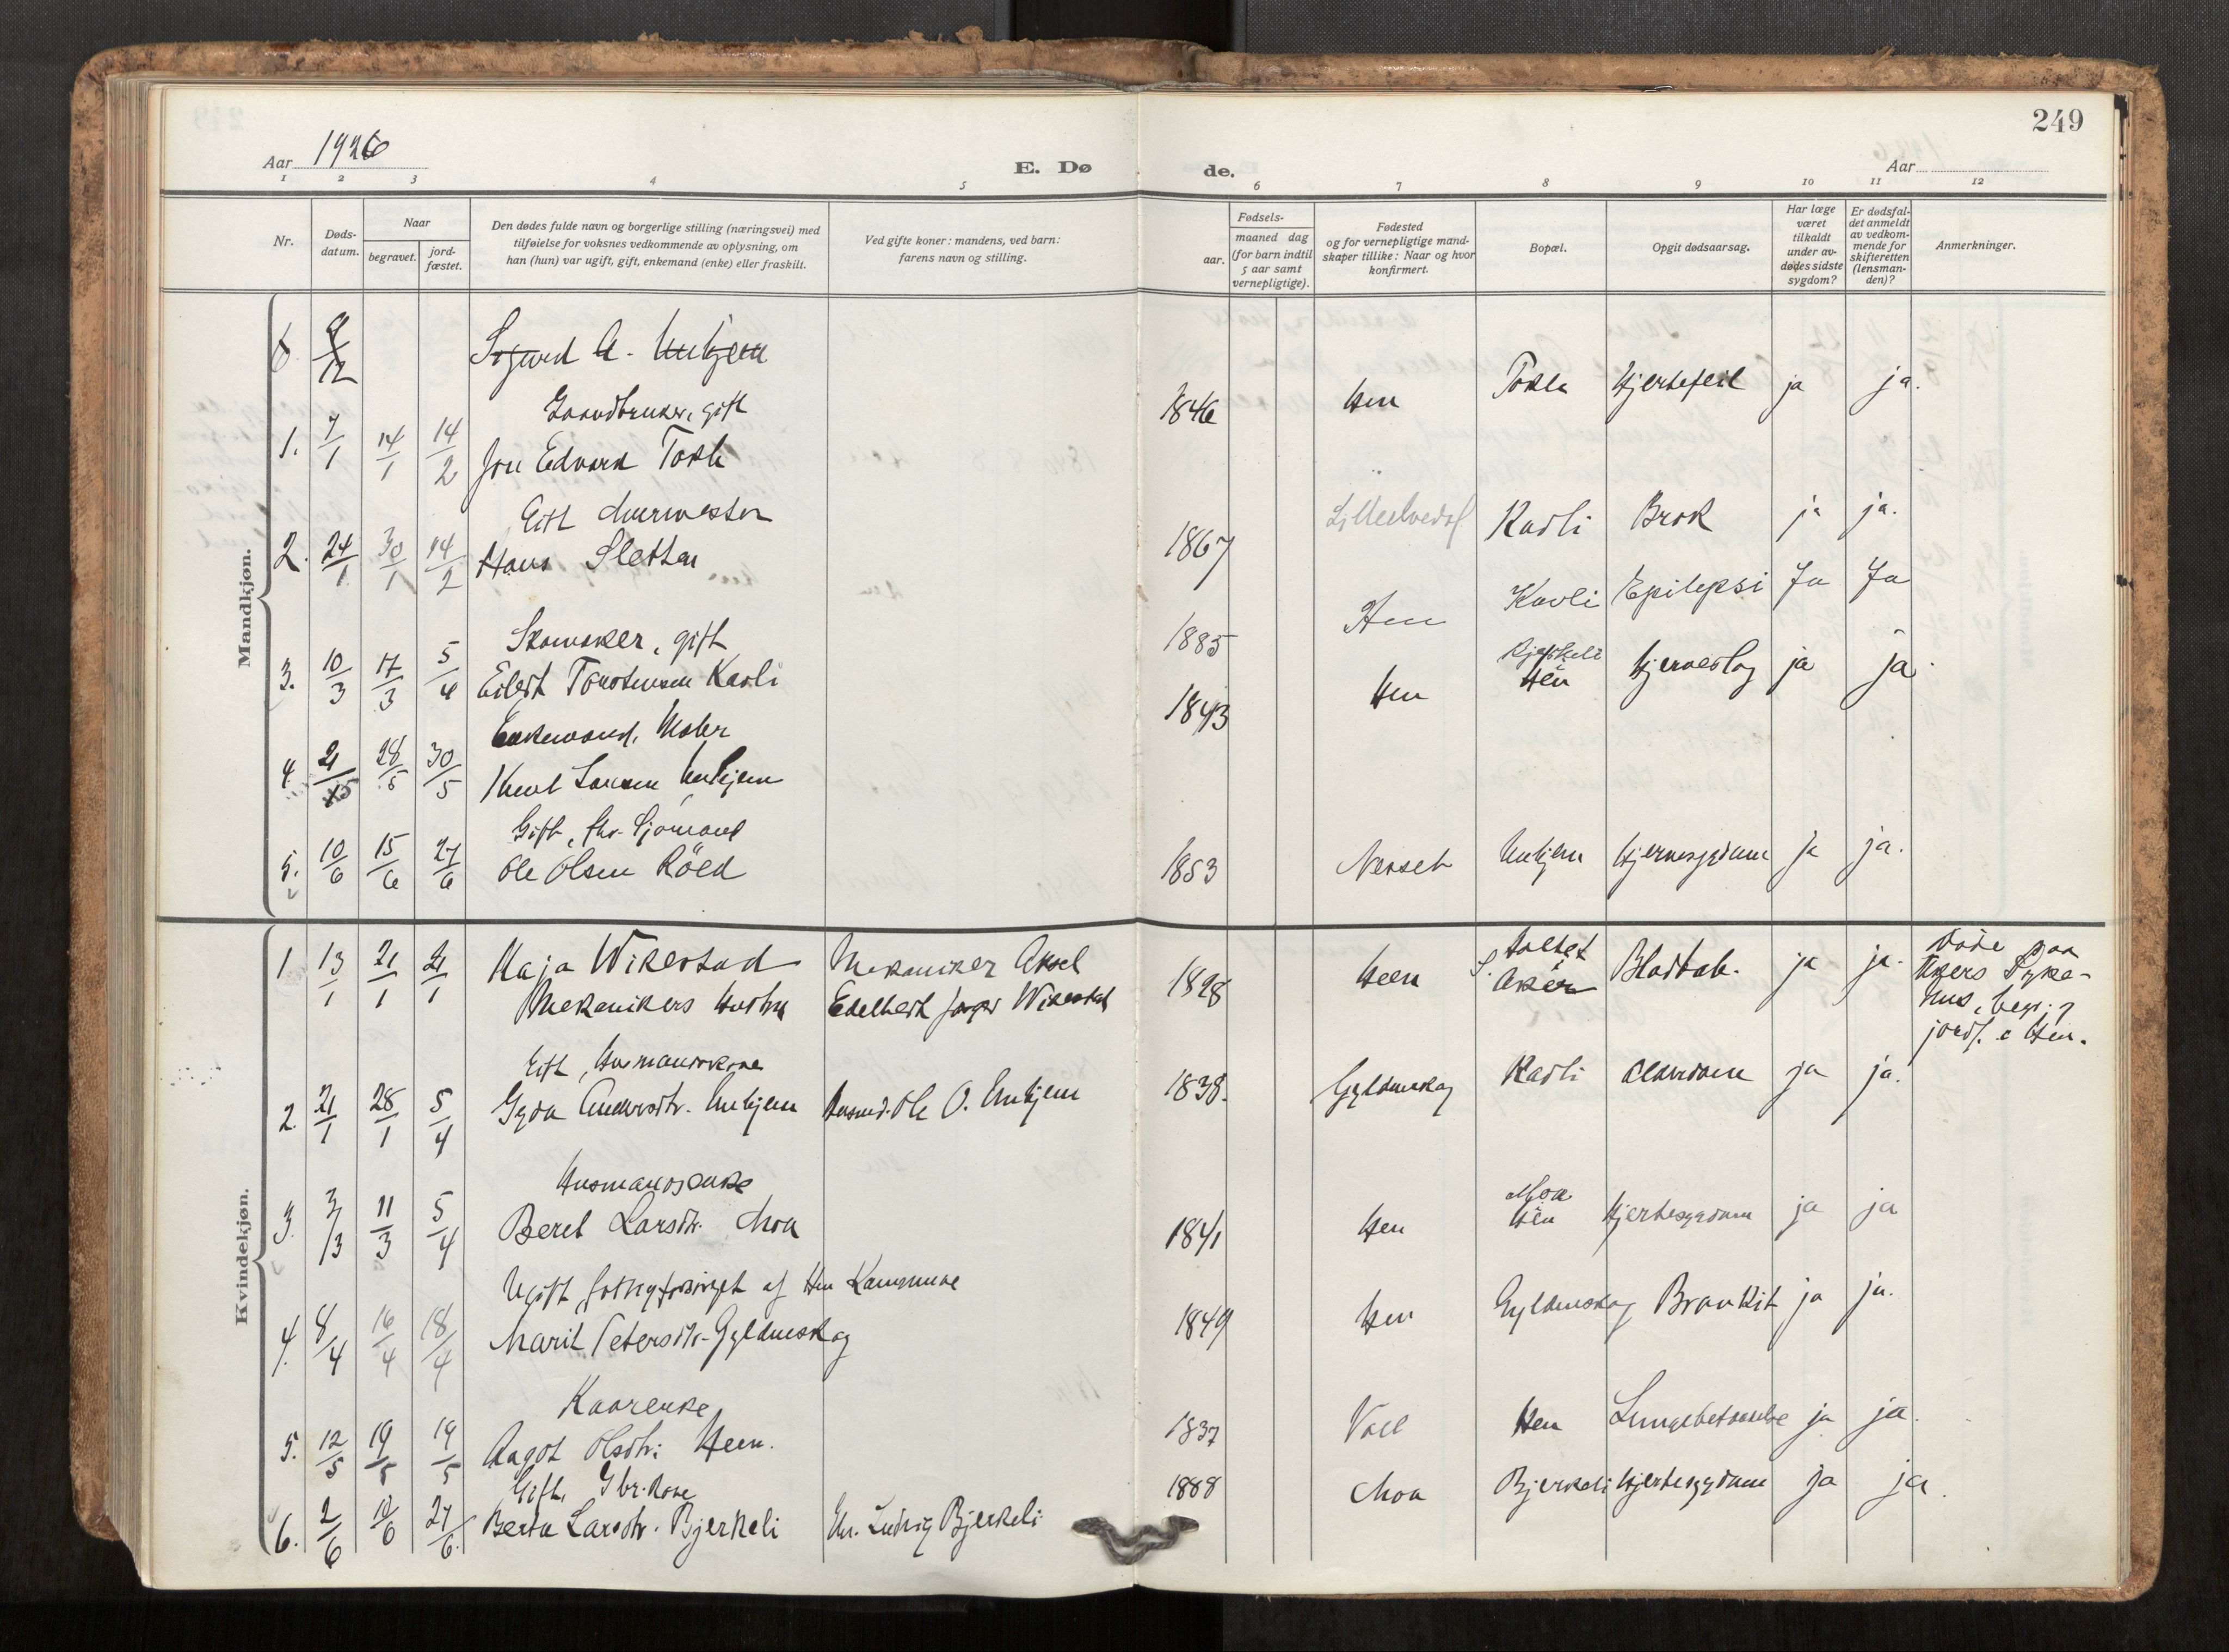 249
Aar 1926
E. Dø de.
Aar
1 2 3 4 5 6 7 8 9 10 11 12
Nr.
Døds-
datum.
Naar
begravet.
jord-
fæstet.
Den dødes fulde navn og borgerlige stilling (næringsvei) med
tilføielse for voksnes vedkommende av oplysning, om
han (hun) var ugift, gift, enkemand (enke) eller fraskilt.
Ved gifte koner: mandens, ved barn:
farens navn og stilling.
Fødsels-
aar.
maaned dag
(for barn indtil
5 aar samt
vernepligtige).
Fødested
og for vernepligtige mand-
skaper tillike: Naar og hvor
konfirmert.
Bopæl.
Opgit dødsaarsag.
Har læge
været
tilkaldt
under av-
dødes sidste
sygdom?
Er dødsfal-
det anmeldt
av vedkom-
mende for
skifteretten
(lensman-
den)?
Anmerkninger.
Mandkjøn.
Sigurd A. Unhjem
Gaardbruker, gift
1. 7/1 14/1 14/2 Jon Edvard Tokle 1846 Hen Tokle Hjertefeil ja ja.
Gift Murmester
2. 24/1 30/1 14/2 Hans Sletten 1867 Kavli Brok ja ja.
Skomaker, gift
3. 10/3 17/3 5/4 Eilert Torstensen Kavli 1885 Hen Kavli Epilepsi Ja Ja
Enkemand, Maler
4. 21/5 28/5 30/5 Knut Larsen Unhjem 1843 Hen Hen Hjerneslag ja ja.
Gift, fhv. Sjømand
5. 10/6 15/6 27/6 Ole Olsen Röed 1853 Nesset Unhjem Hjernesygdom ja ja.
Kvindekjøn.
1 13/1 21/1 21/1 Kaja Wikestad Mekaniker Aksel 1898 Heen Aker ja ja. Døde paa
Mekanikers Hustru Edelbert Wikestad Akers Syke-
hus, begr. og
jordf. i Hen.
Gift, Husmandskone
2. 21/1 28/1 5/4 Gyda Andersdtr. Unhjem Husmd. Ole O. Unhjem 1838. Gyldenskog Kavli Alderdom ja ja.
Husmandsenke
3. 3/3 11/3 5/4 Beret Larsdtr. Moa 1841 Hen Moa Hen Hjertesygdom ja ja
Ugift, fattigforsörget af Hen Kommune
4. 8/4 16/4 18/4 Marit Petersdtr. Gyldenskog 1849 Hen Gyldenskog Bronkit ja ja.
Kaarenke
5. 12/5 19/5 19/5 Aagot Olsdtr. Heen. 1837 Voll Hen Lungebetændelse ja ja.
Gift, Gbr. kone
6. 2/6 10/6 27/6 Berta Larsdtr. Bjerkeli Gbr. Ludvig Bjerkeli 1888 Moa Bjerkeli Hjertesygdom ja ja.